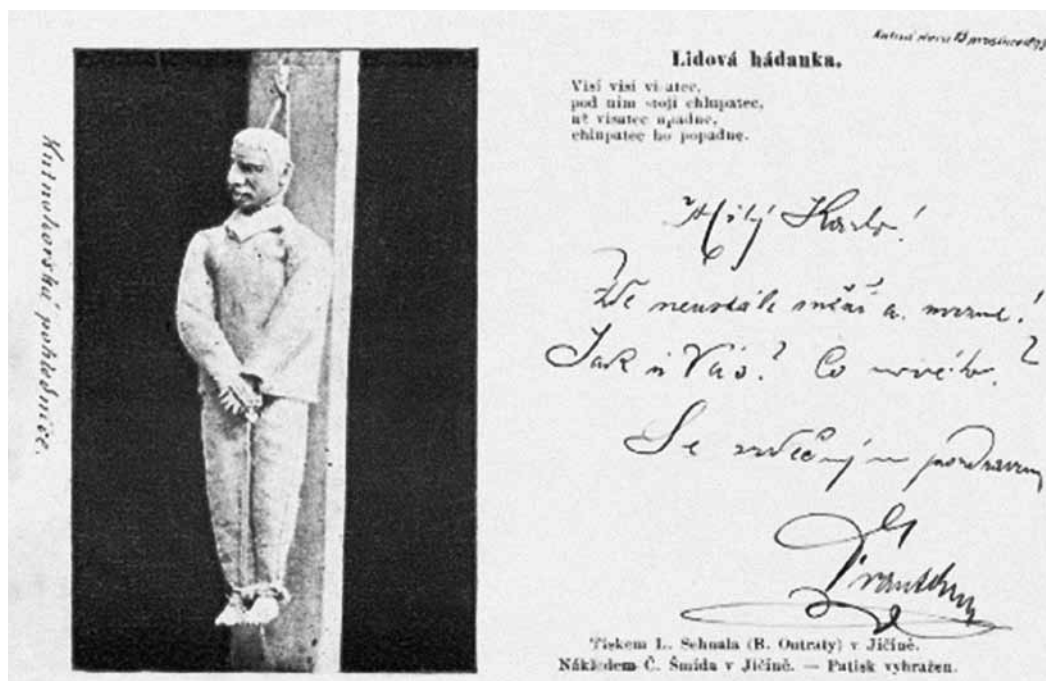 Kutnohorské pohlednice.
Kutná Hora 13 prosince
Lidová hádanka.
Visí visí visatec,
pod ním stojí chlupatec,
až visatec upadne,
chlupatec ho popadne.
Milý Karle!
Zde neustále a mrzne!
Jak u Vás? Co nového?
Se srdečným pozdravem
Tiskem L. Sehnala (B. Outraty) v Jičíně.
Nákladem Č. Šmída v Jičíně. — Patisk vyhražen.